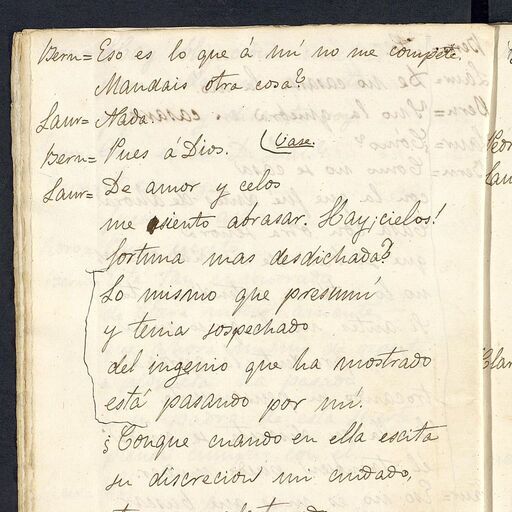 Bern= Eso es lo que á mí no me compete.
Mandais otra cosa?
Laur= Nada.
Bern= Pues á Dios. (Vase.
Laur= De amor y celos
me siento abrasar. Hay ¡cielos!
fortuna mas desdichada?
Lo mismo que presumí
y tenia sospechado
del ingenio que ha mostrado
está pasando por mí.
¿Conque cuando en ella escita
su discrecion mi cuidado,
Pedr
Lau
Clar